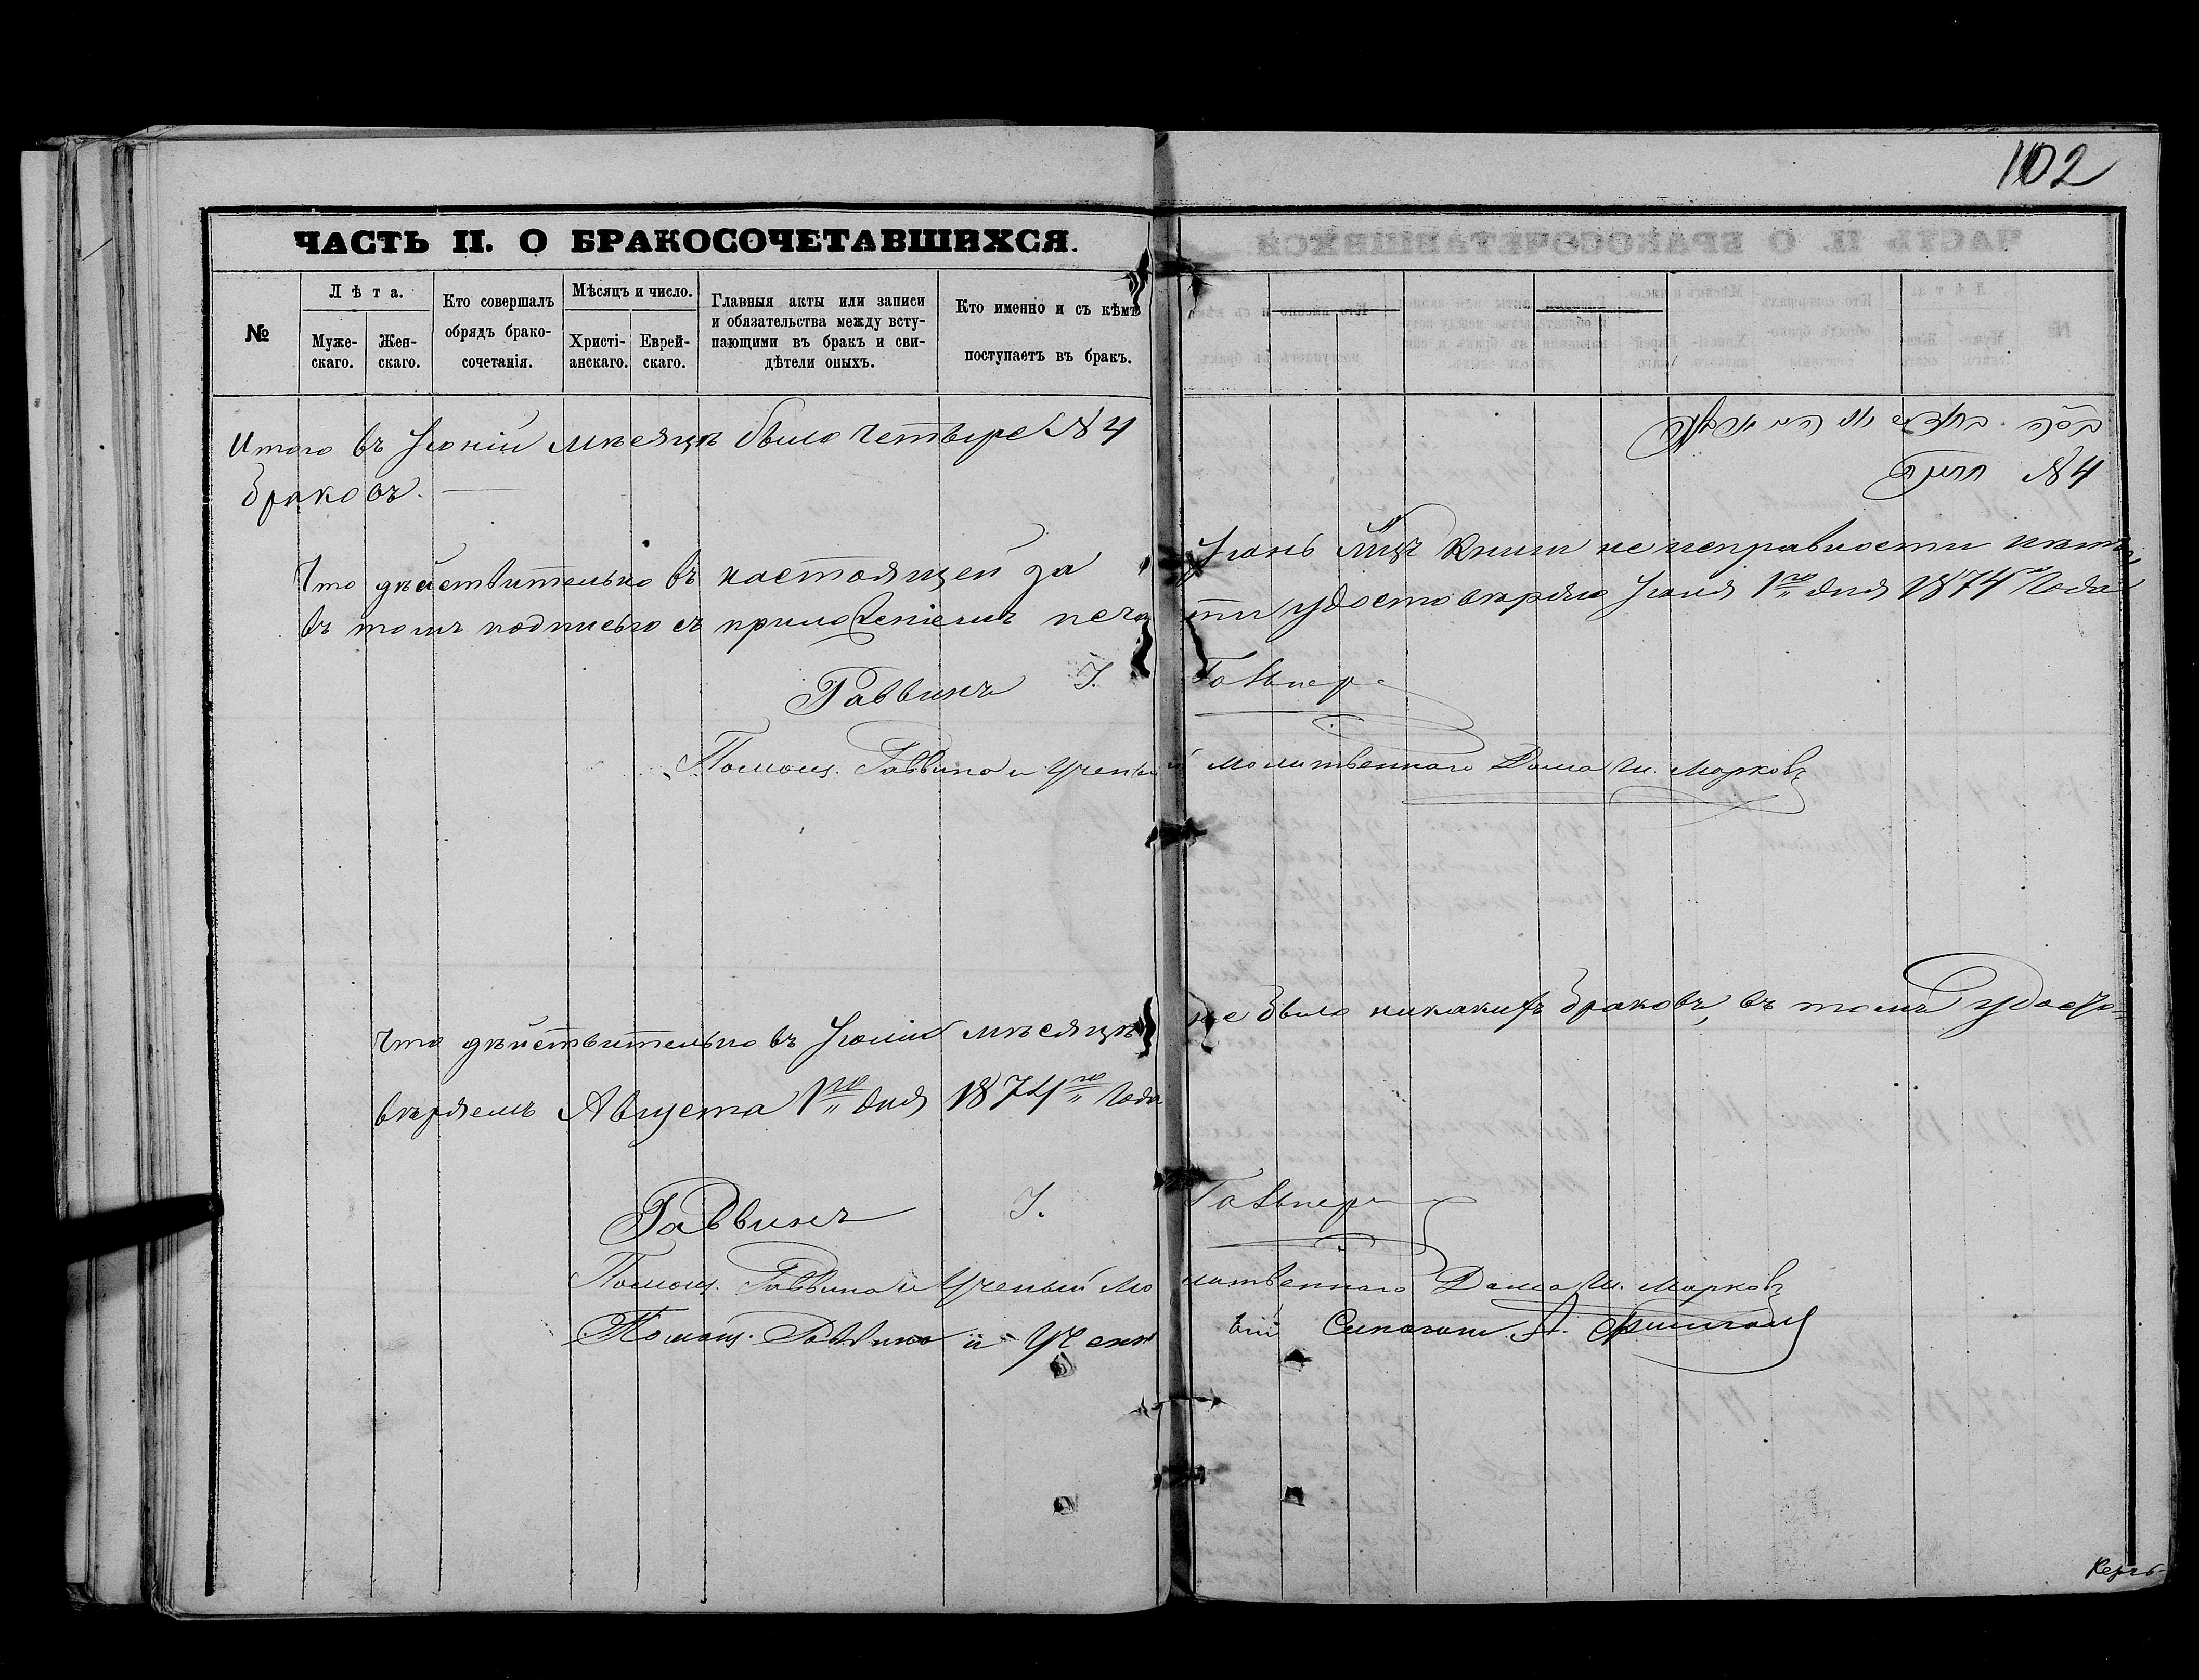 102
ЧАСТЬ II. О БРАКОСОЧЕТАВШИХСЯ.
№
Лѣта.
Муже-
скаго.
Жен-
скаго.
Кто совершалъ
обрядъ брако-
сочетанія.
Мѣсяцъ и число.
Христі-
анскаго.
Еврей-
скаго.
Главныя акты или записи
и обязательства между всту-
пающими въ бракъ и сви-
дѣтели оныхъ.
Кто именно и съ кѣмъ
поступаетъ въ бракъ.
Итого въ Іюніи мѣсяцѣ было четыре № 4
браковъ.
№ 4
Что дѣйствительно въ настоящей за Іюнь книги не исправности
въ томъ подписью съ приложеніемъ печати удостовѣряю Іюля 1го дня 1874 года
Раввинъ І. Гальпер
Помощ. Раввина и Ученый молитвеннаго Дома Ш. Марковъ
Что дѣйствительно въ Іюлии мѣсяцѣ не было никакихъ браковъ, въ томъ удосто-
вѣряемъ Августа 1го дня 1874го года
Раввинъ І. Гальпер
Помощ. Раввина и Ученый молитвеннаго Дома Ш. Марковъ
Помощ. Раввина и Учен Синагоги А.
Керчь